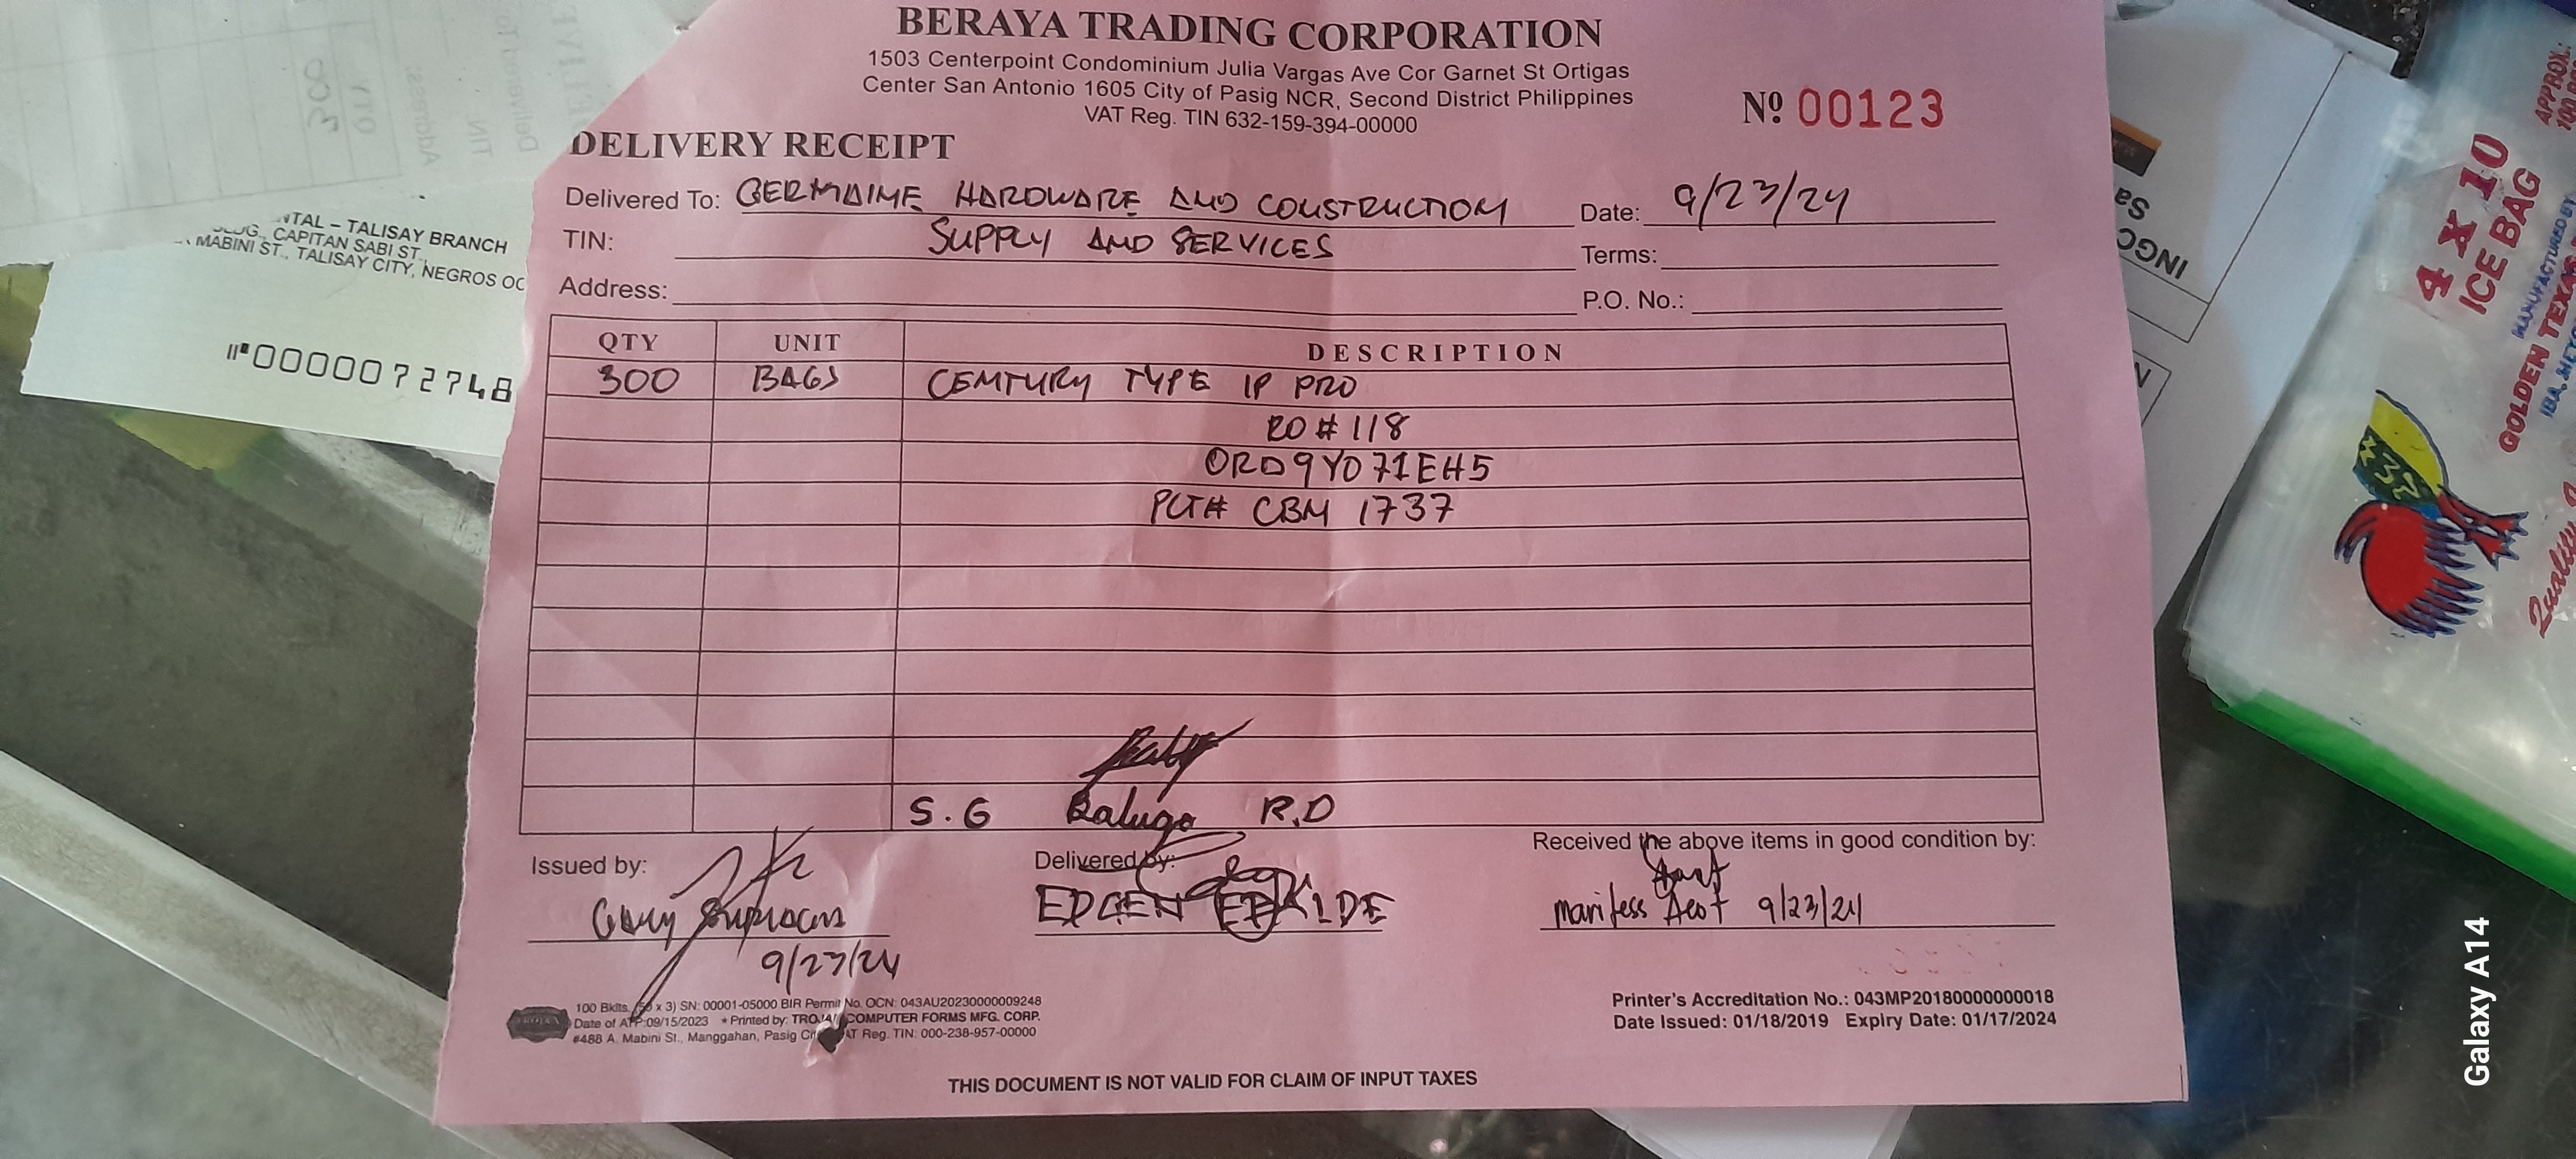 BERAYA TRADING CORPORATION
1503 Centerpoint Condominium Julia Vargas Ave Cor Garnet St Ortigas
Center San Antonio 1605 City of Pasig NCR, Second District Philippines
VAT Reg. TIN 632-159-394-00000
Nº 00123
DELIVERY RECEIPT
Delivered To: GERMAINE HARDWARE AND CONSTRUCTION
Date: 9/23/24
TIN: SUPPLY AND SERVICES
Terms:
Address:
P.O. No.:
QTY UNIT DESCRIPTION
300 BAGS CEMTURY TYPE IP PRO
RO # 118
ORD9YO71EH5
PLT# CBM 1737
S.G Baluga R.D
Issued by:
Delivered by:
Received the above items in good condition by:
EDGEN
9/23/24
9/23/24
100 Bklts. x 3) SN: 00001-05000 BIR Permit No. OCN: 043AU20230000009248
Date of ATP:09/15/2023 * Printed by: TROJAN COMPUTER FORMS MFG. CORP.
#488 A. Mabini St., Manggahan, Pasig VAT Reg. TIN: 000-238-957-00000
Printer's Accreditation No.: 043MP20180000000018
Date Issued: 01/18/2019 Expiry Date: 01/17/2024
THIS DOCUMENT IS NOT VALID FOR CLAIM OF INPUT TAXES
TALISAY BRANCH
CAPITAN SABI ST.,
MABINI ST., TALISAY CITY, NEGROS OC
⑈0000072748
300
QTY
Address:
TIN
INGCO
Sa
4 X 10
ICE BAG
APPROX.:
MANUFACTURED BY:
GOLDEN TEXAS
Galaxy A14